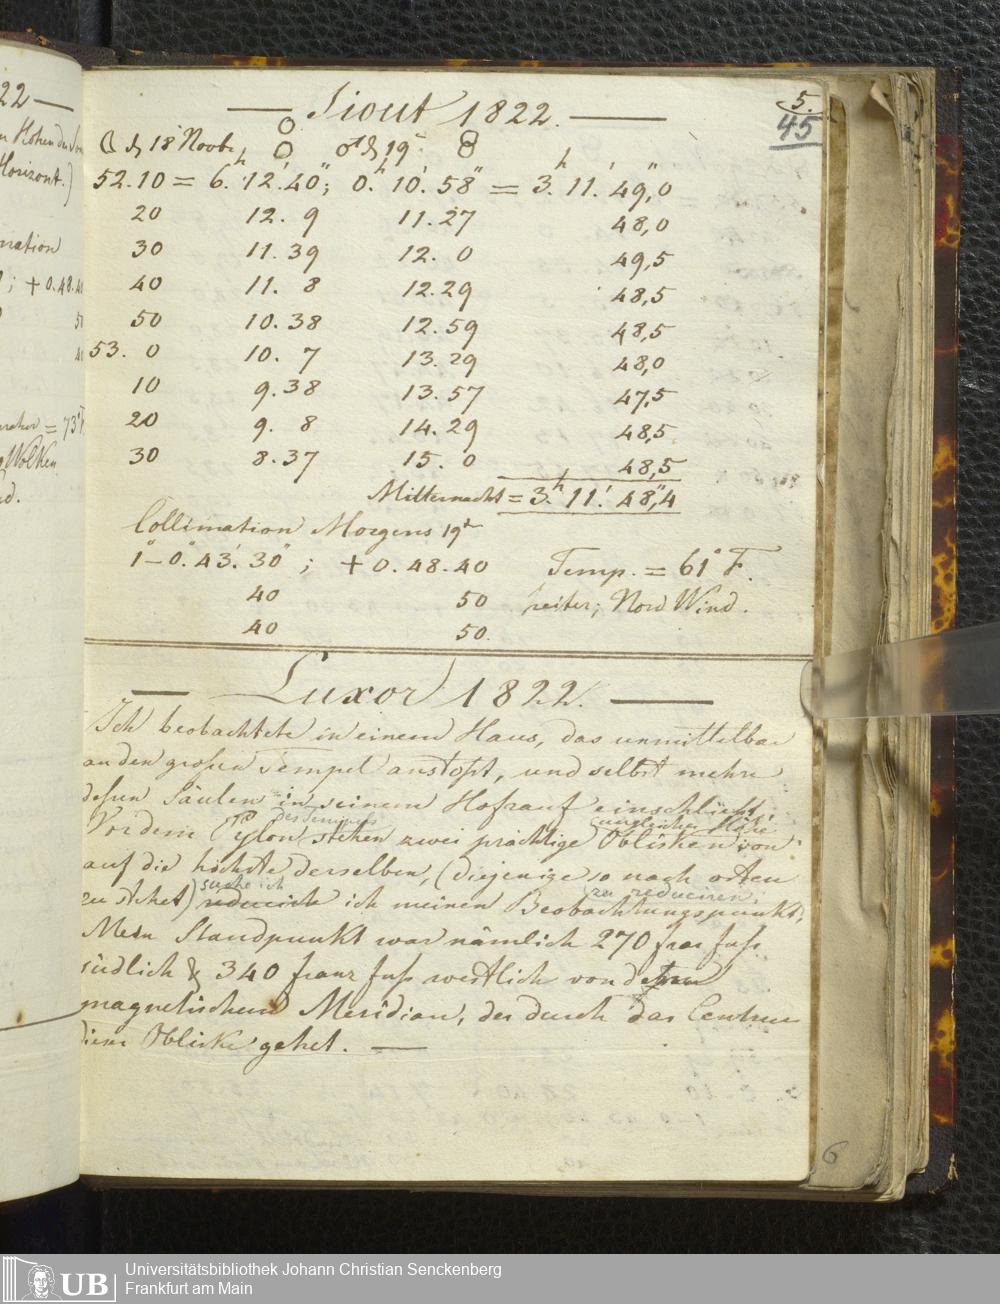 22 —
5.
45
— Siout 1822. —
☾ d 18 Novbr. ♂ d 19t
52.10 = 6.h 12.' 40"; 0.h 10.' 58" = 3.h 11.' 49",0
20 12. 9 11.27 48,0
30 11.39 12. 0 49,5
40 11. 8 12.29 48,5
50 10.38 12.59 48,5
53. 0 10. 7 13.29 48,0
10 9.38 13.57 47,5
20 9. 8 14.29 48,5
30 8.37 15. 0 48,5
Mitternacht = 3.h 11.' 48",4
Collimation Morgens 19t
1° – 0.° 43.' 30"; + 0. 48. 40 Temp. = 61° F.
40 50 heiter; Nord Wind.
40 50.
— Luxor 1822. —
Ich beobachtete in einem Haus, das unmittelbar
an den großen Tempel anstoßt, und selbst mehre
deßen Säulen in seinem Hofrauf einschließt.
des Tempels ungleiche Höhe
Vor dem Pylon stehen zwei prächtige Oblisken von
auf die höchste derselben, (diejenige so nach osten
suche ich zu reduciren.
zu stehet) reducirte ich meinen Beobachtungspunkt,
Mein Standpunkt war nämlich 270 franz fuß
südlich & 340 franz fuß westlich von dem
magnetischem Meridian, der durch das Centrum
dieser Obliske gehet. —
6
UB Universitätsbibliothek Johann Christian Senckenberg
Frankfurt am Main